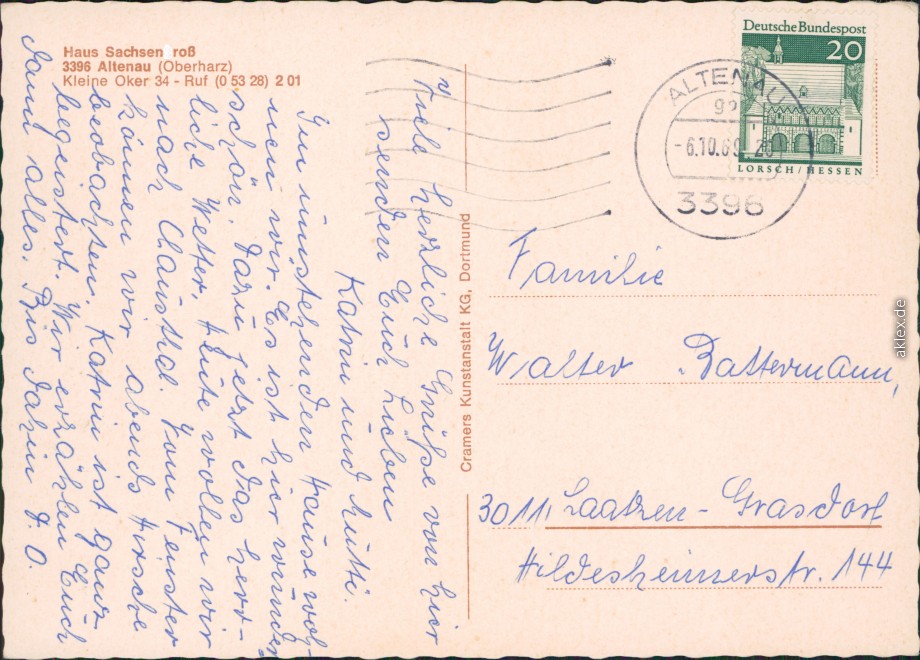 Haus Sachsen roß
3396 Altenau (Oberharz)
Kleine Oker 34 - Ruf (0 53 28) 2 01
Viele herzliche Grüße von hier
senden Euch Lieben
Katrin und Mutti.
Im umstehenden Hause woh-
nen wir. Es ist hier wunder-
schön. Dazu jetzt das herr-
liche Wetter. Heute wollen wir
nach Clausthal. Vom Fenster
können wir abends Hirsche
beobachten. Katrin ist ganz
begeistert. Wir erzählen Euch
dann alles. Bis dahin
Cramers Kunstanstalt KG, Dortmund
Deutsche Bundespost
20
LORSCH/HESSEN
ALTENAU
-6.10.69-20
3396
Familie
Walter Battermann,
3011 Laatzen-Grasdorf
Hildesheimerstr. 144
aklex.de